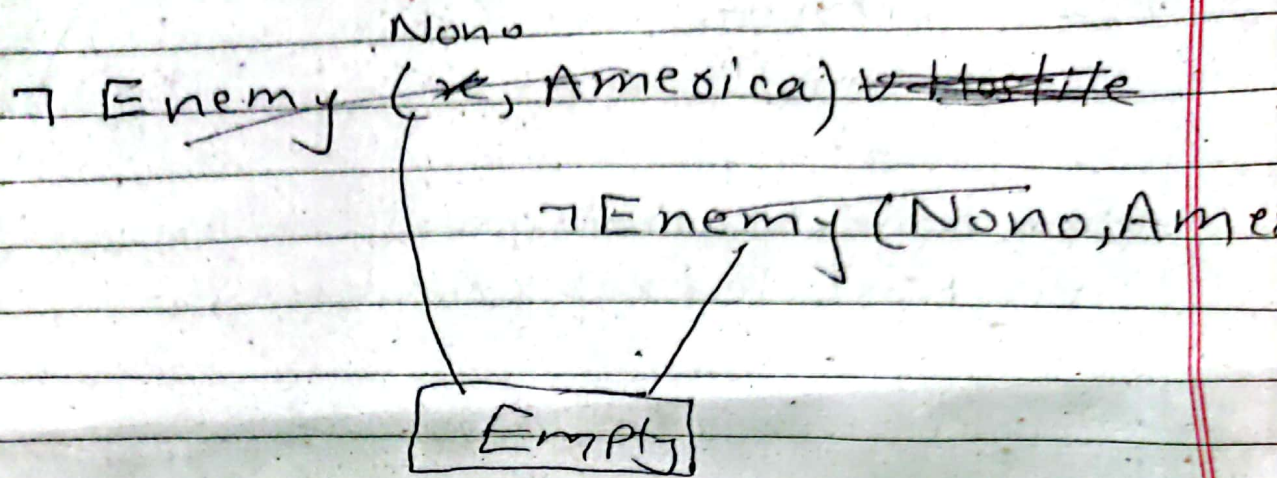 Nono
¬ Enemy (x, America) ∨ Hostile
¬Enemy (Nono, Ame
Empty